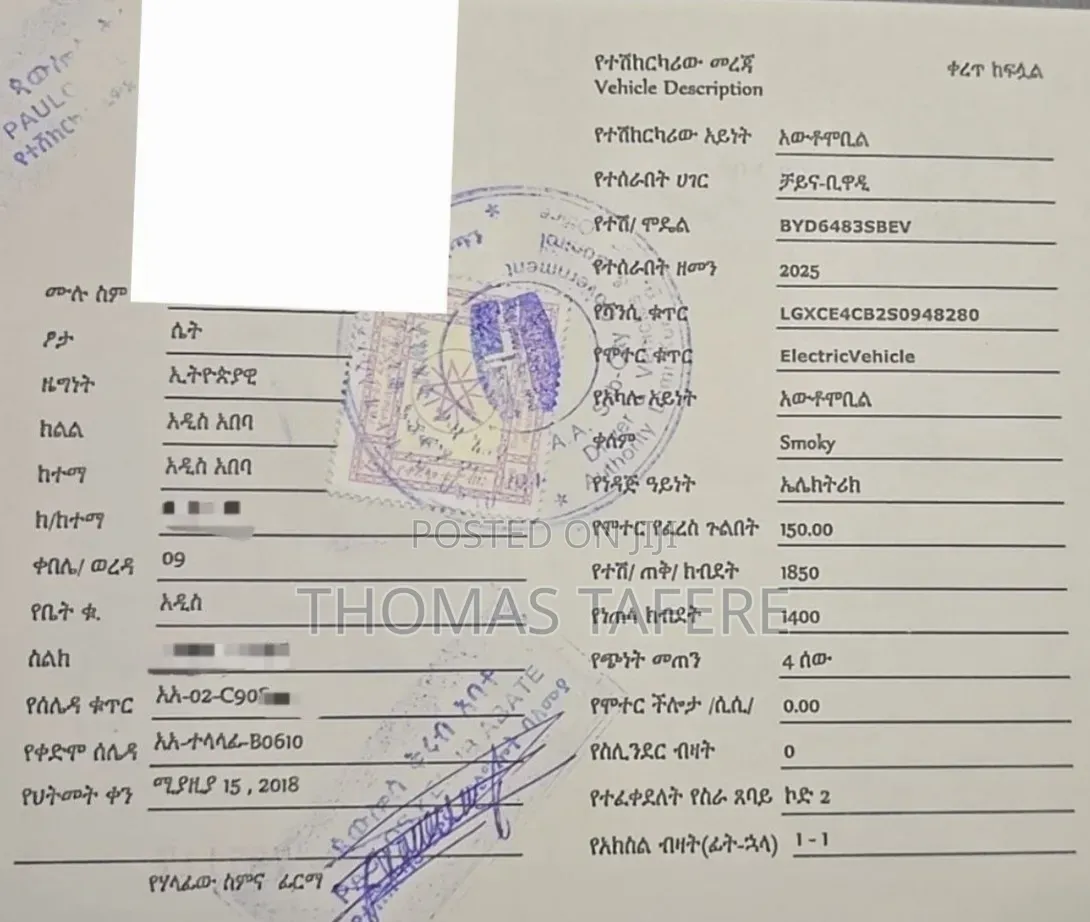 ሙሉ ስም
ፆታ ሴት
ዜግነት ኢትዮጵያዊ
ክልል አዲስ አበባ
ከተማ አዲስ አበባ
ክ/ከተማ
ቀበሌ/ ወረዳ 09
የቤት ቁ. አዲስ
ስልክ
የሰሌዳ ቁጥር አአ-02-C90
የቀድሞ ሰሌዳ አአ-ተላላፊ-B0610
የህትመት ቀን ሚያዚያ 15 , 2018
የሃላፊው ስምና ፊርማ
የተሽከርካሪው መረጃ ቀረጥ ከፍሏል
Vehicle Description
የተሽከርካሪው አይነት አውቶሞቢል
የተሰራበት ሀገር ቻይና-ቢዋዲ
የተሽ/ ሞዴል BYD6483SBEV
የተሰራበት ዘመን 2025
የሻንሲ ቁጥር LGXCE4CB2S0948280
የሞተር ቁጥር ElectricVehicle
የአካሉ አይነት አውቶሞቢል
ቀለም Smoky
የነዳጅ ዓይነት ኤሌክትሪክ
የሞተር የፈረስ ጉልበት 150.00
የተሽ/ ጠቅ/ ክብደት 1850
የነጠላ ክብደት 1400
የጭነት መጠን 4 ሰው
የሞተር ችሎታ /ሲሲ/ 0.00
የሲሊንደር ብዛት 0
የተፈቀደለት የስራ ጸባይ ኮድ 2
የአክስል ብዛት(ፊት-ኋላ) 1 - 1
POSTED ON JIJI
THOMAS TAFERE